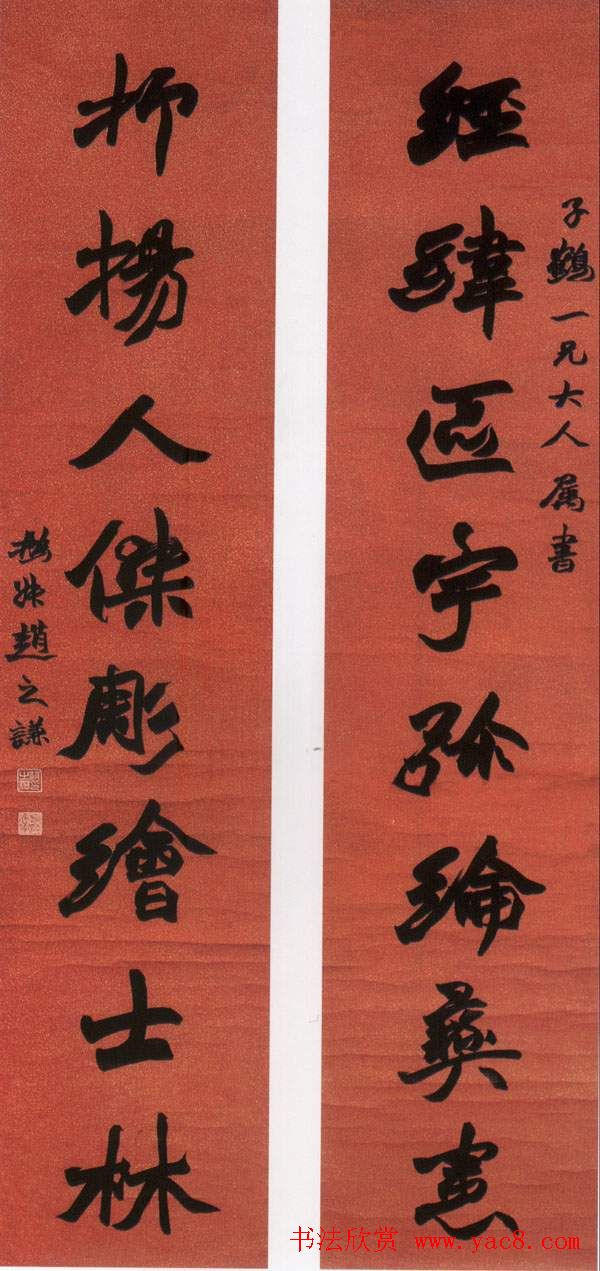 子鶴一兄大人属書
經緯區宇弥綸彝憲
抑揚人傑彫繪士林
撝叔趙之謙
书法欣赏 www.yac8.com